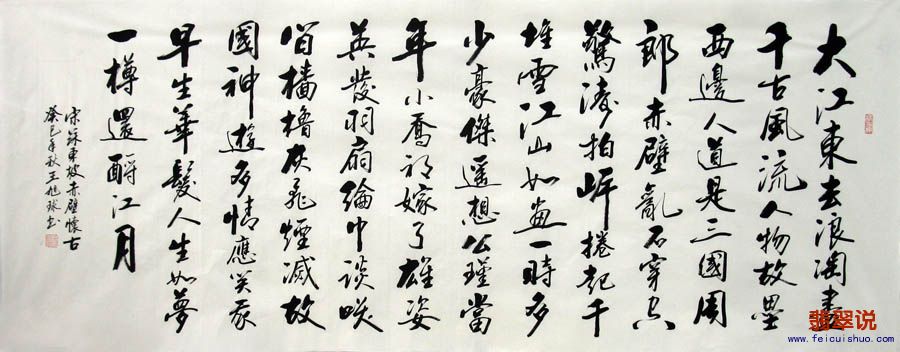 大江東去浪淘盡
千古風流人物故壘
西邊人道是三國周
郎赤壁亂石穿空
驚濤拍岸捲起千
堆雪江山如畫一時多
少豪傑遥想公瑾當
年小喬初嫁了雄姿
英發羽扇綸巾談咲
間檣櫓灰飛煙滅故
國神遊多情應笑我
早生華髮人生如夢
一樽還酹江月
宋蘇東坡赤壁懷古
癸巳年秋王旭書
翡翠说
www.feicuishuo.com